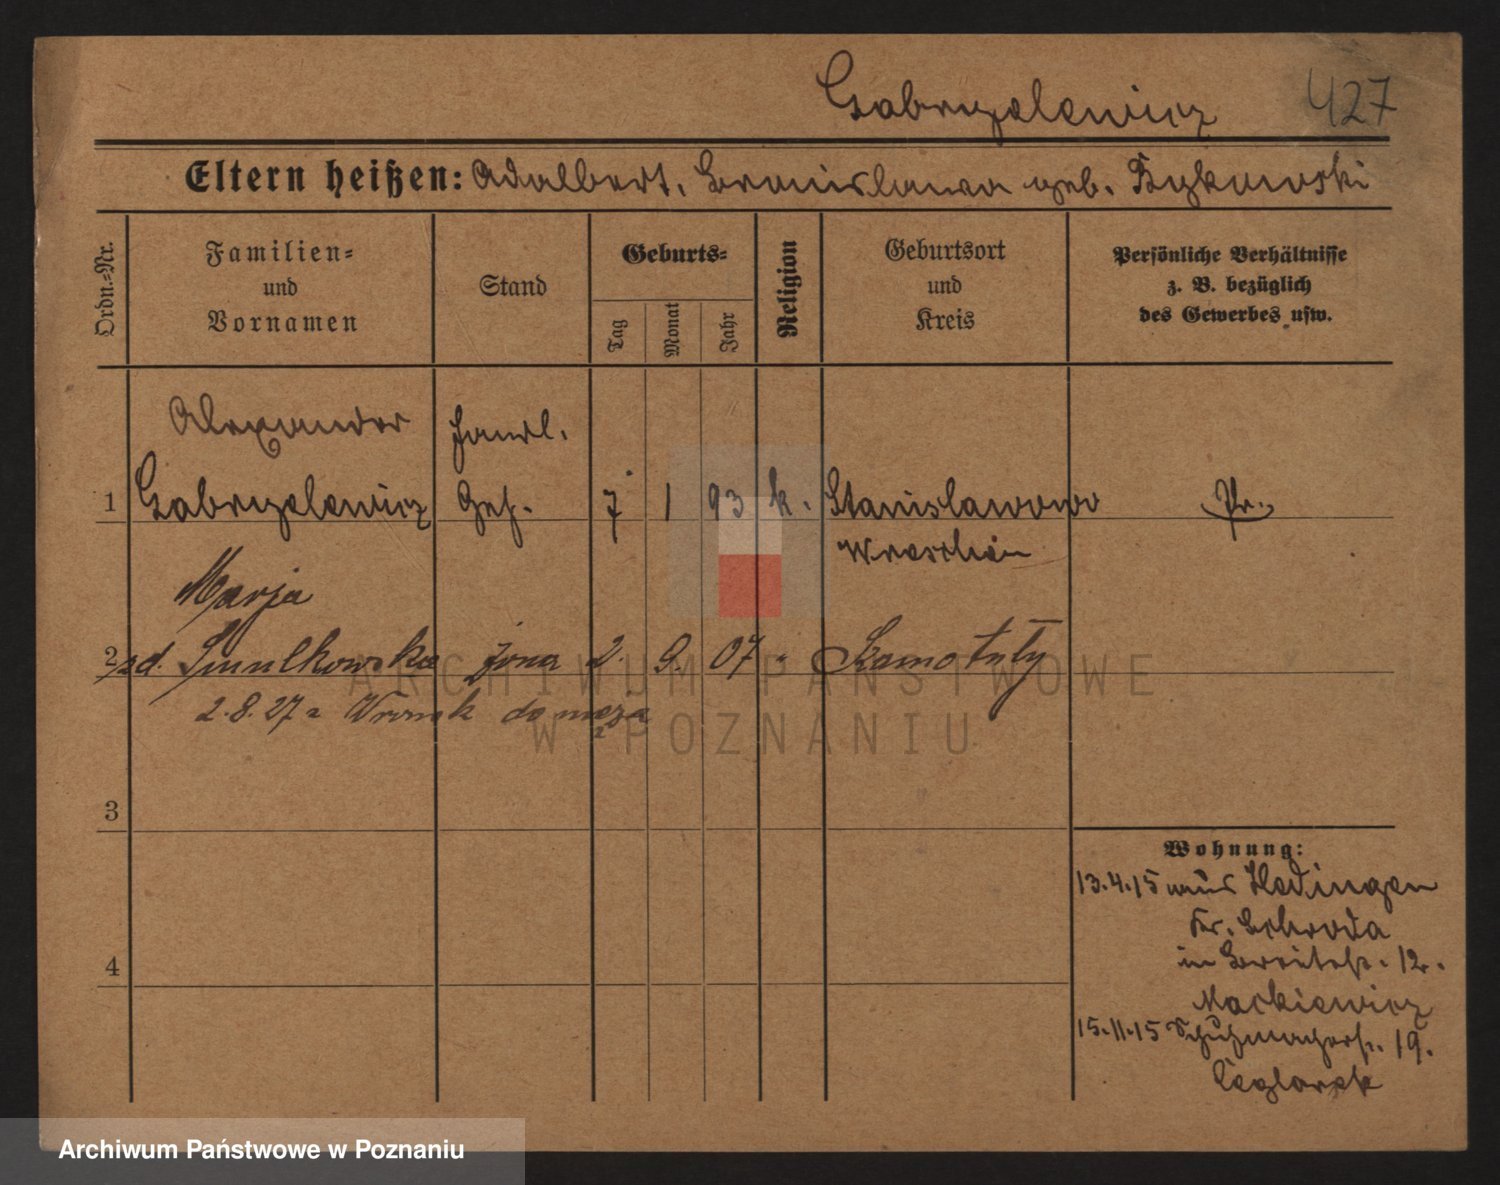 Gabryelewicz 427
Eltern heißen: Adalbert, Bronislawa geb. Bykowski
Ordn.-Nr.
Familien-
und
Vornamen
Stand
Geburts-
Tag
Monat
Jahr
Religion
Geburtsort
und
Kreis
Persönliche Verhältnisse
z. B. bezüglich
des Gewerbes usw.
Alexander Handl.
1 Gabryelewicz Geh. 7 1 93 k. Stanislawowo Pr.
Wreschen
Marja
2 zd. Smulkowska żona 2. 9. 07 " Szamotuły
2.8.27 z Wronek do męża
3
Wohnung:
13.4.15 aus Hedingen
Kr. Schroda
4
in Breitestr. 12.
Mackiewicz
15.11.15 Schuhmacherstr. 19.
Ceglarek
ARCHIWUM PAŃSTWOWE
W POZNANIU
Archiwum Państwowe w Poznaniu